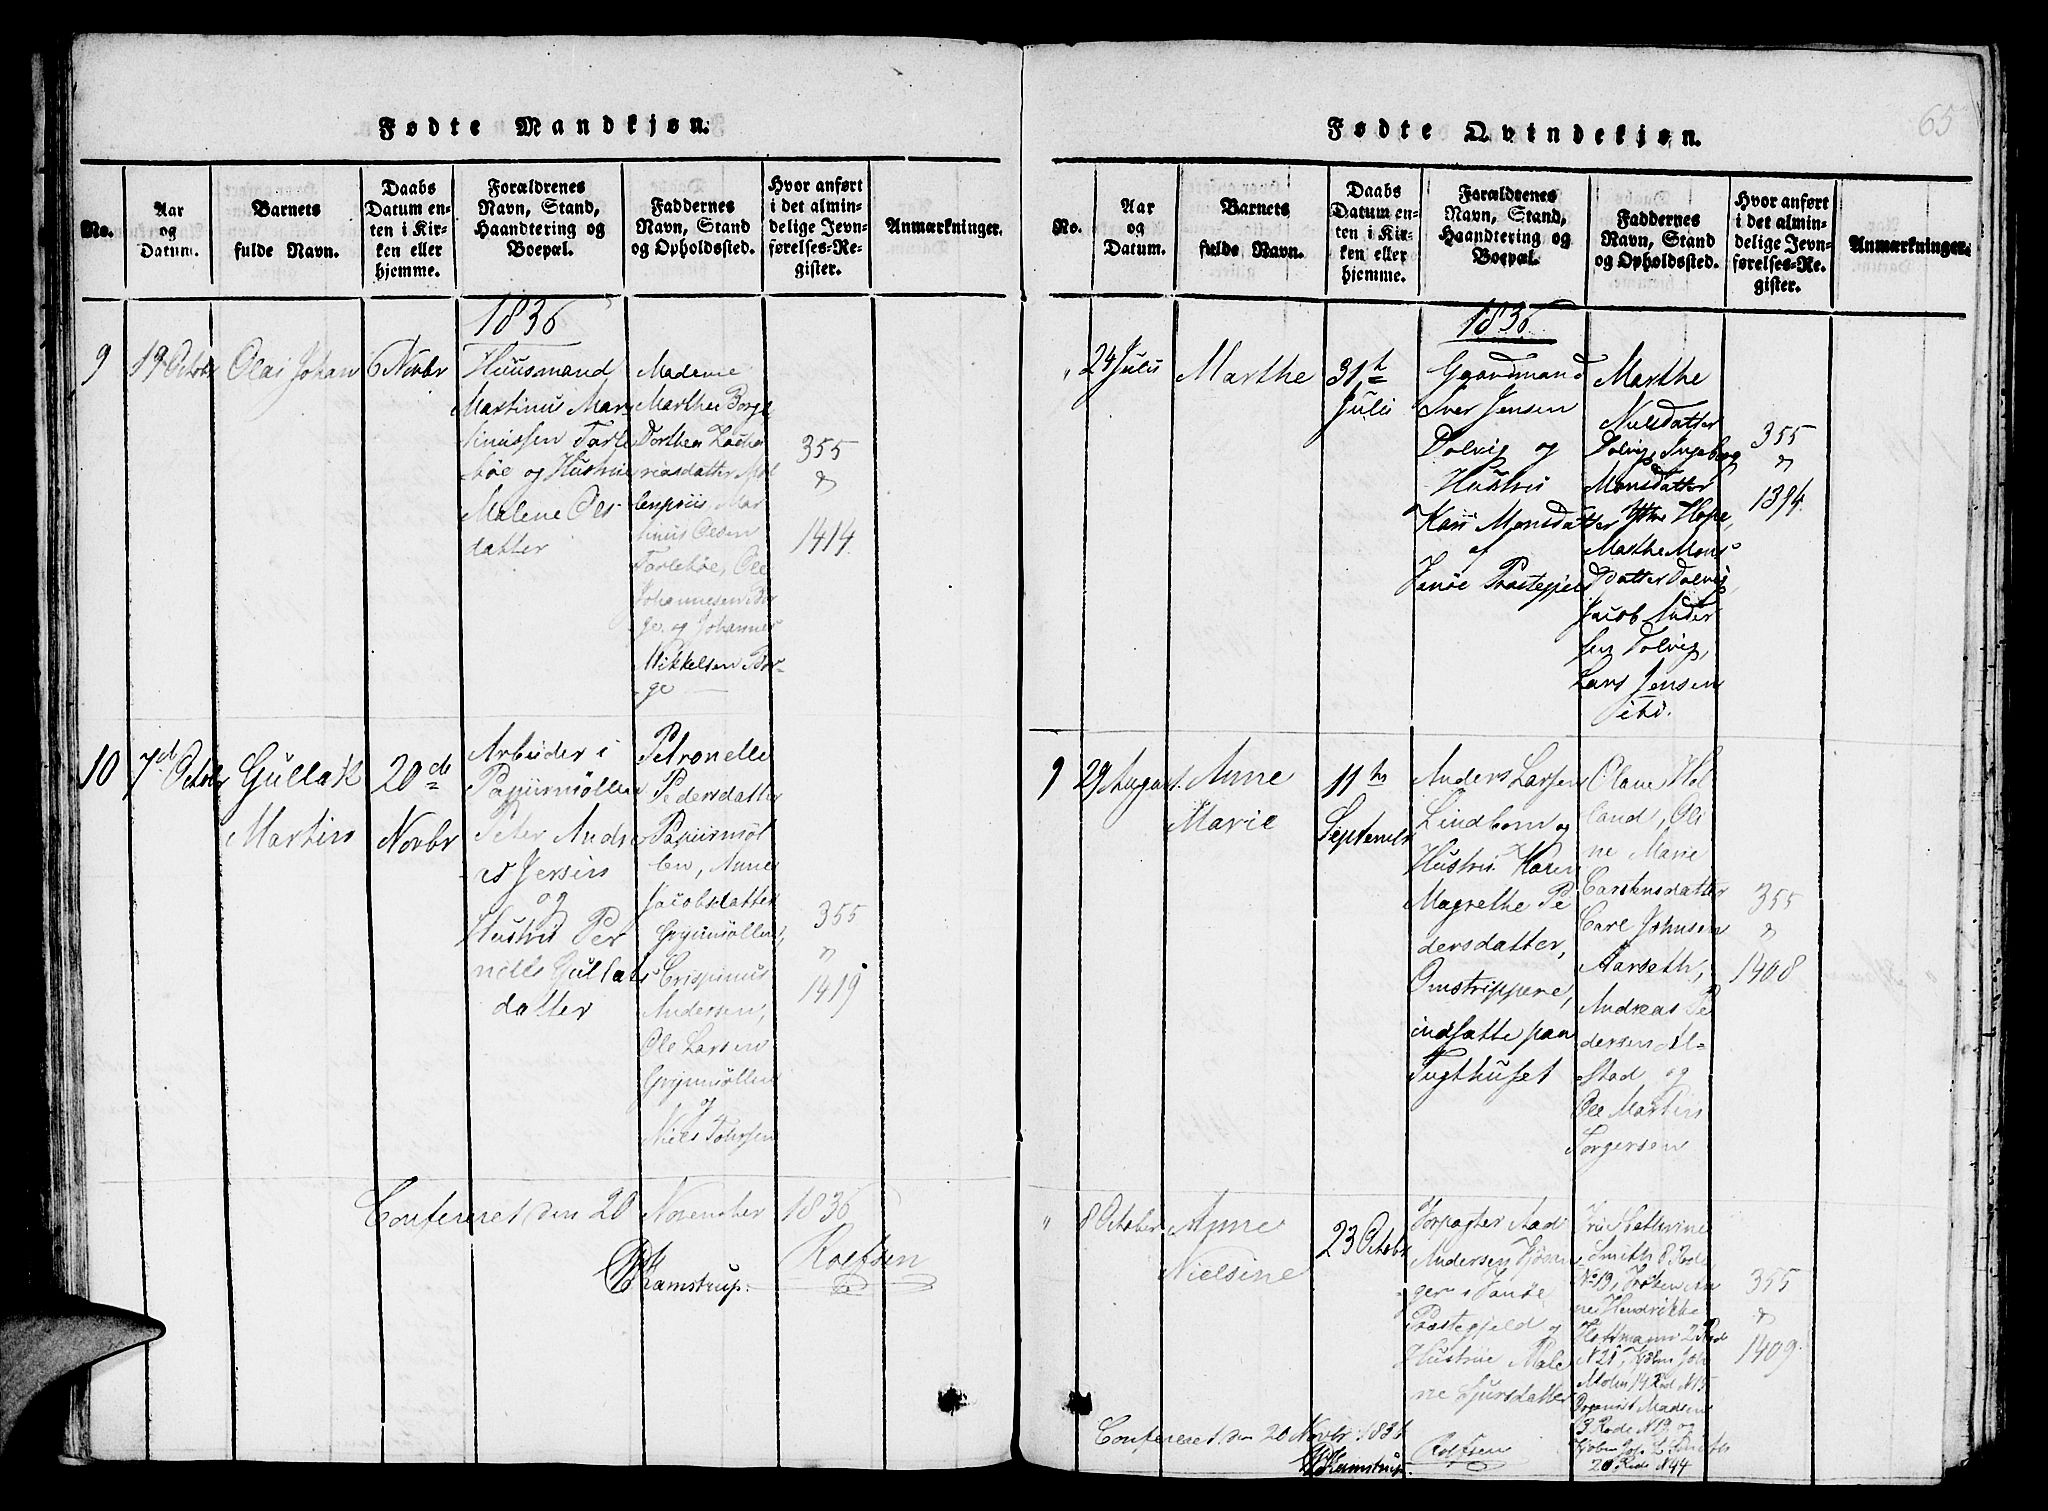 65
Fødte Mandkjøn.
No.
Aar
og
Datum.
Barnets
fulde Navn.
Daabs
Datum en-
ten i Kir-
ken eller
hjemme.
Forældrenes
Navn, Stand,
Haandtering og
Boepæl.
Faddernes
Navn, Stand
og Opholdssted.
Hvor anført
i det almin-
delige Jevn-
førelses-Re-
gister.
Anmærkninger.
1836
9
19 Octobr
Olai Johan
6 Novbr
Huusmand
Martinus Mar
tinussen Tarle
böe og Hustrue
Malene Ols
datter
Madame
Marthe Borge
Dorthea Zacha
riasdatter Møl
lenpriis, Mar
tinus Olsen
Tarleböe, Ole
Johannesen Bor
ge og Johannes
Mikkelsen Bor-
ge
355
&
1414
10
7d Octobr
Gullak
Martin
20de
Novbr
Arbeider i
Papiirmøllen
Peter Andre
as Jersin
og
Hustrue Per
nille Gullaks
datter
Petronelle
Pedersdatter
Papiirmøl
len, Anne
Jacobsdatter
Grynmøllen,
Crispinus
Andersen,
Ole Larsen
Grynmøllen
og
Niels Tohrsen
355
"
1419
Confereret den 20 November 1836
Kamstrup.
Rolfsen
Fødte Qvindekjøn.
No.
Aar
og
Datum.
Barnets
fulde Navn.
Daabs
Datum en-
ten i Kir-
ken eller
hjemme.
Forældrenes
Navn, Stand,
Haandtering og
Boepæl.
Faddernes
Navn, Stand
og Opholdssted.
Hvor anført
i det almin-
delige Jevn-
førelses-Re-
gister.
Anmærkninger.
1836
24 Julii
Marthe
31th
Julii
Gaardmand
Iver Jensen
Dolvig og
Hustrue
Kari Monsdatter
af
Fanöe Præstegjeld
Marthe
Nielsdatter
Dolvig, Ingeborg
Monsdatter
Ytre Hope,
Marthe Mons
Datter Dolvig,
Jacob Ander
sen Dolvig,
Lars Jensen
ibid.
355
&
1394
9
29 August.
Anne
Marie
11te
Septembr
Anders Larsen
Lindborn og
Hustrue Karen
Magrethe Pe
dersdatter,
Omstrippere,
indsatte paa
Tugthuset
Olane Hol
land, Oli
ne Marie
Carstensdatter
Carl Johnsen
Aarseth,
Andreas Pe
dersen Al-
stad og
Ole Martin
Torgersen
355
&
1408
"
8 October
Anne
Nielsine
23 Octobr
Forpagter Aad
Andersen
ger i Fanöe
Præstegjeld og
Hustrue Male
ne Sjursdatter
Frue Cathrine
Smith 8 Rode
No 19, Frøken An
ne Hendrikke
Hoffmann 2 Rod
N 21, Kjøbm Joh
Mohn 14 Rod N 15
Organist Madsen
13 Rode N 19 og
Kjøbm Joh L Smith
20 Rode N 44
355
&
1409
Confereret den 20 Novbr 1836
Kamstrup
Rolfsen